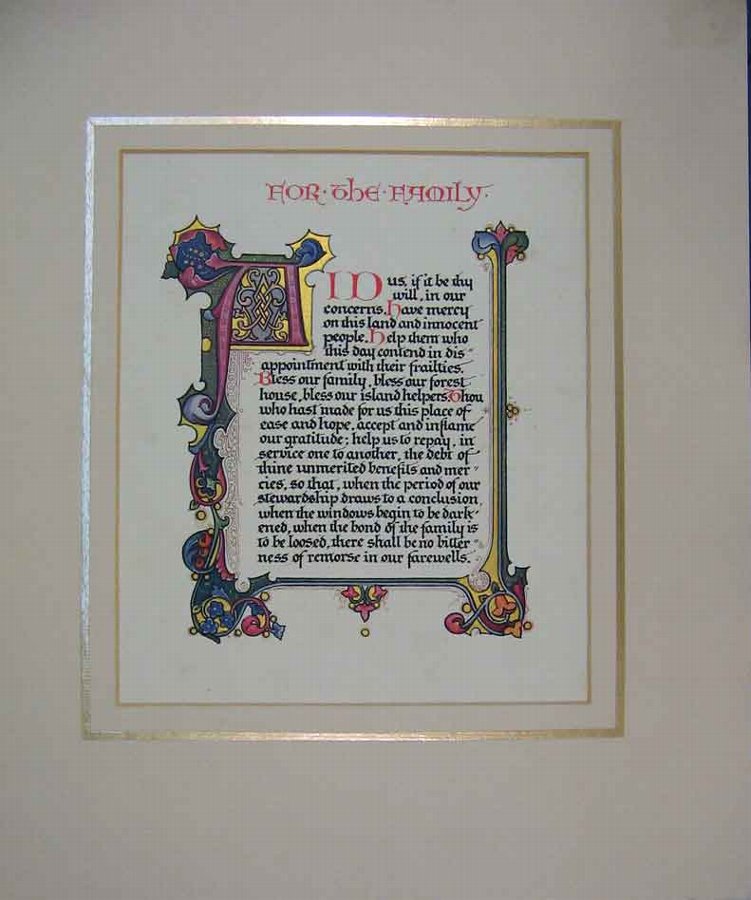 FOR · the · FAMILY ·
AID us, if it be thy
will, in our
concerns. have mercy
on this land and innocent
people. help them who
this day contend in dis-
appointment with their frailties.
Bless our family, bless our forest
house, bless our island helpers. Thou
who hast made for us this place of
ease and hope, accept and inflame
our gratitude; help us to repay, in
service one to another, the debt of
thine unmerited benefits and mer-
cies, so that, when the period of our
stewardship draws to a conclusion,
when the windows begin to be dark-
ened, when the bond of the family is
to be loosed, there shall be no bitter-
ness of remorse in our farewells.